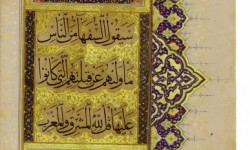 سَيَقُولُ السُّفَهَاءُ مِنَ النَّاسِ
مَا وَلَّاهُمْ عَنْ قِبْلَتِهِمُ الَّتِي كَانُوا
عَلَيْهَا قُلْ لِلَّهِ الْمَشْرِقُ وَالْمَغْرِبُ